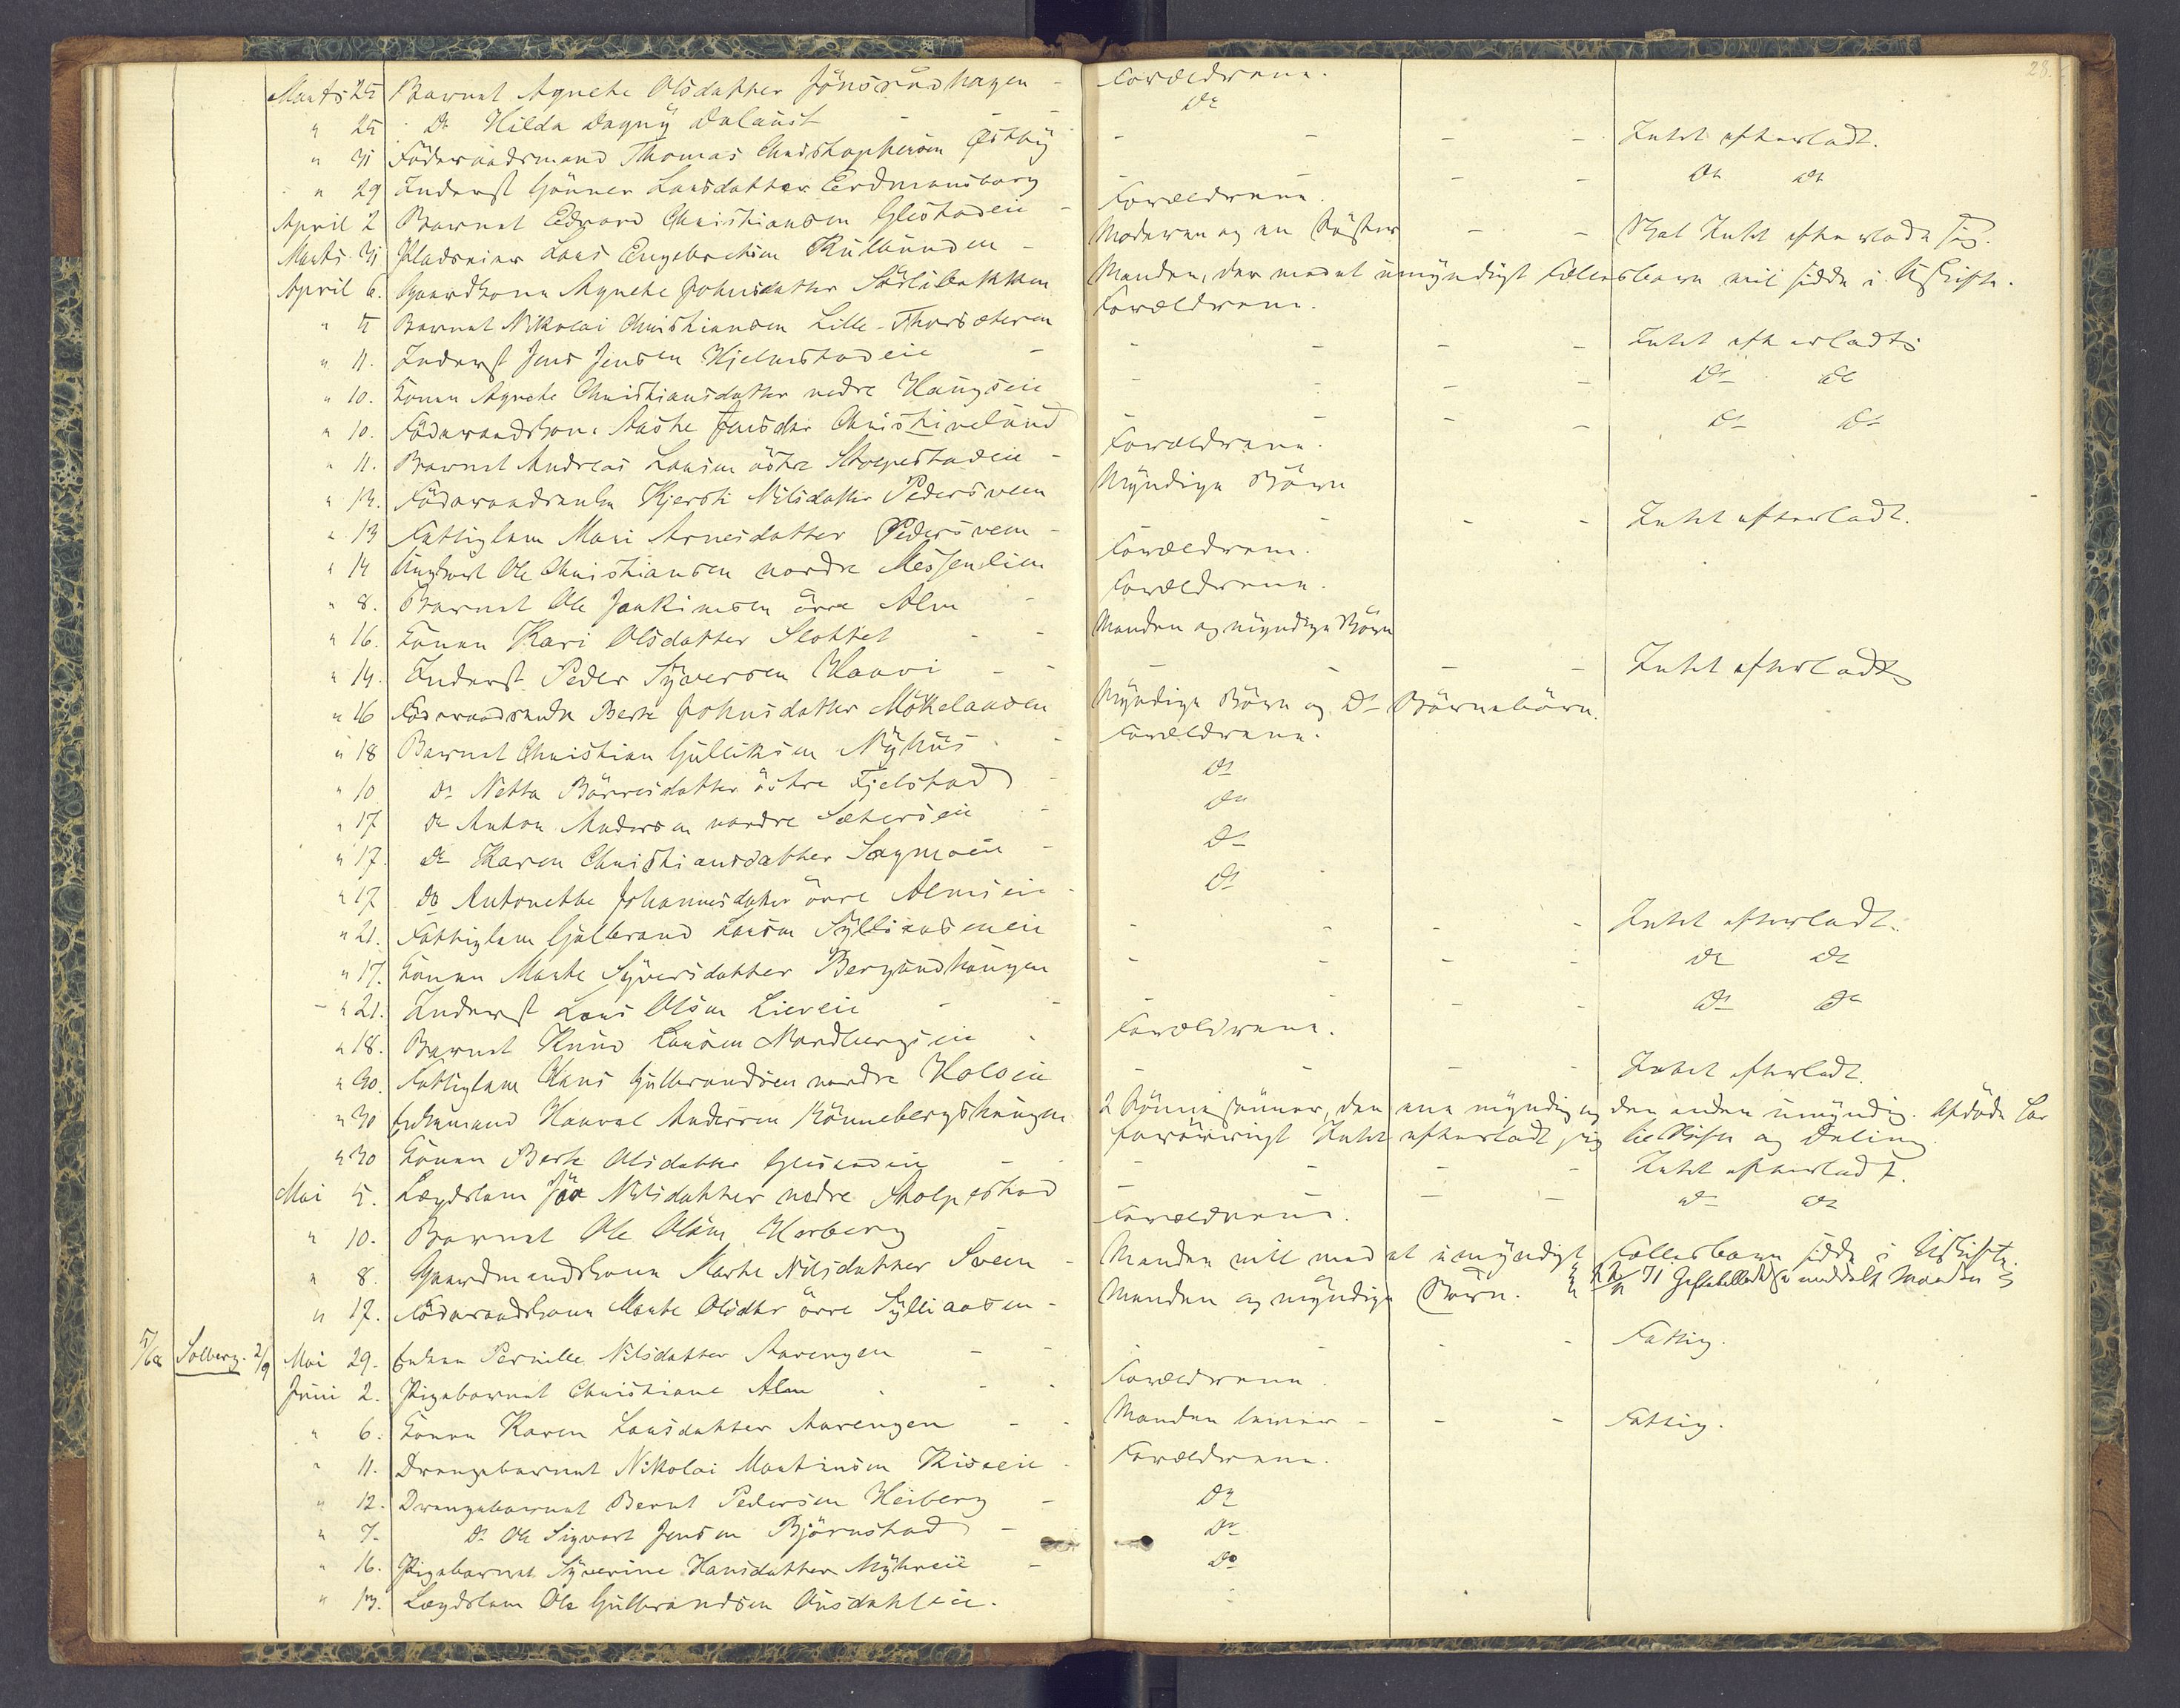 28.
Marts 25 Barnet Agnethe Olsdatter Jönsrudhagen - Forældrene.
" 25 Do Hilda Dagny Dalaust - Do
" 31 Föderaadsmand Thomas Christophersen Østby - - - - Intet efterladt.
" 29 Inderst Gönner Larsdatter Eerdmansborg - - - Do Do
April 2 Barnet Edvard Christiansen Glestadeie - Forældrene.
Marts 31 Pladseier Lars Engebretsen Rudlunden - Moderen og en Søster - - Skal Intet efterlade sig.
April 6. Gaardkone Agnethe Johnsdatter Sörlibakken Manden, der med et umyndigt Fællesbarn vil sidde i Uskifte.
" 5 Barnet Nikolai Christiansen Lille-Thorsæteren Forældrene.
" 11. Inderst Jens Jensen Hjelmstadeie - - - - Intet efterladt
" 10. Konen Agnethe Christiansdatter nedre Haugseie - - - - Do Do
" 10. Föderaadskone Aasthe Jensdtr Christinelund - - - - Do Do
" 11. Barnet Andreas Larsen östre Skolpestadeie - Forældrene.
" 13. Föderaadsenke Kjersti Nilsdatter Pedersveen Myndige Börn
" 13 Fattiglem Mari Arnesdatter Pedersveen - - - - Intet efterladt.
" 14 Ole Christiansen nordre Messenlien Forældrene.
" 8. Barnet Ole Joakimsen övre Alm - Forældrene.
" 16. Konen Kari Olsdatter Slottet - - Manden og myndige Börn
" 14. Inderst Peder Syversen Haavi - - - - - Intet efterladt
" 16 Föderaadsenke Berthe Johnsdatter Mökelaasen Myndige Börn og Do Börnebörn.
" 18 Barnet Christian Gulliksen Nyhus - Forældrene.
" 10 Do Netta Börresdatter östre Fjelstad - Do
" 17 Do Anton Andersen nordre Sæterseie - Do
" 17. Do Karen Christiansdatter Sagmoeie - Do
" 17 Do Antonette Johannesdatter övre Almseie - Do
" 21. Fattiglem Gulbrand Larsen Sylliaaseneie - - - - Intet efterladt.
" 17. Konen Marthe Syversdatter Bergsundhaugen - - - - Do Do
" 21. Inderst Lars Olsen Lieveie - - - - Do Do
" 18. Barnet Knud Larsen Nordbergseie - Forældrene.
" 30. Fattiglem Hans Gulbrandsen nordre Holoeie - - - - Intet efterladt.
" 30 Enkemand Haavel Andersen Rönnebergshaugen 2 Sönner, den ene myndig og den anden umyndig. Afdöde har
forövrigt Intet efterladt sig til Skifte og Deling.
" 30 Konen Berthe Olsdatter - - - - Intet efterladt.
Mai 5. Lægdslem Nilsdatter nedre Skolpestad - - - Do Do
" 10. Barnet Ole Olsen Harberg Forældrene.
" 8. Gaardmandskonen Marthe Nilsdatter Sveen - Manden vil med et umyndigt Fællesbarn sidde i Uskifte.
" 17. Föderaadskonen Marthe Olsdtr övre Sylliaasen - Manden og myndige Börn. meddelt Manden
5/62 Solberg. 2/9 Mai 29. Enken Pernille Nilsdatter Aarengen - - - - Fattig.
Juni 2. Pigebarnet Christiane Alm - - Forældrene.
" 6. Konen Karen Larsdatter Aarengen - - Manden lever - - - Fattig.
" 11. Drengebarnet Nikolai Martinsen Riseeie - Forældrene.
" 12. Drengebarnet Bernt Pedersen Heiberg - Do
" 7. Do Ole Sigvart Jensen Björnstad - Do
" 16. Pigebarnet Syverine Hansdatter Myhreie - Do
" 13. Lægdslem Ole Gulbrandsen Ausdahleie. -